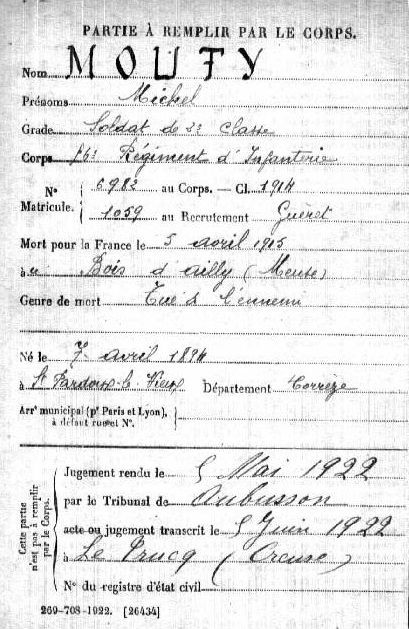 PARTIE À REMPLIR PAR LE CORPS.
Nom MOUTY
Prénoms Michel
Grade Soldat de 2e classe
Corps Régiment d'Infanterie
N° 6983 au Corps. — Cl. 1914
Matricule. 1059 au Recrutement Guéret
Mort pour la France le 5 avril 1915
à u Bois d'ailly (Meuse)
Genre de mort Tué à l'ennemi
Né le 7 avril 1894
à St Pardoux-le-Vieux Département Corrèze
Arr^t municipal (p^r Paris et Lyon),
à défaut rue et N°.
Cette partie
n'est pas à remplir
par le Corps.
Jugement rendu le 5 Mai 1922
par le Tribunal de Aubusson
acte ou jugement transcrit le 5 Juin 1922
à Le Trucq (Creuse)
N° du registre d'état civil
269-708-1922. [26434]